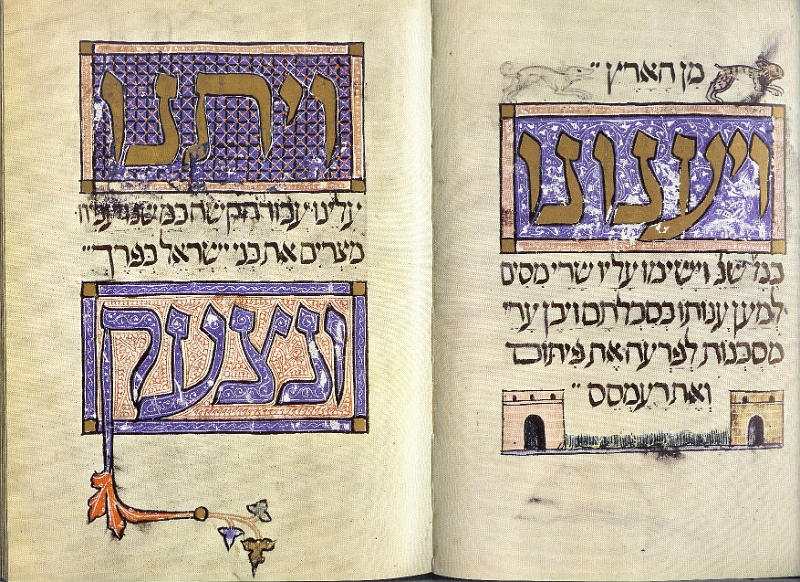 מן הארץ ״
ויענונו
כמ שנ וישימו עליו שרי מסים
למען ענותו בסבלתם ויבן ערי
מסכנות לפרעה את פיתום
ואת רעמסס ״
ויתנו
עלינו עבודה קשה כמ שנ
מצרים את בני ישראל בפרך ״
ונצעק